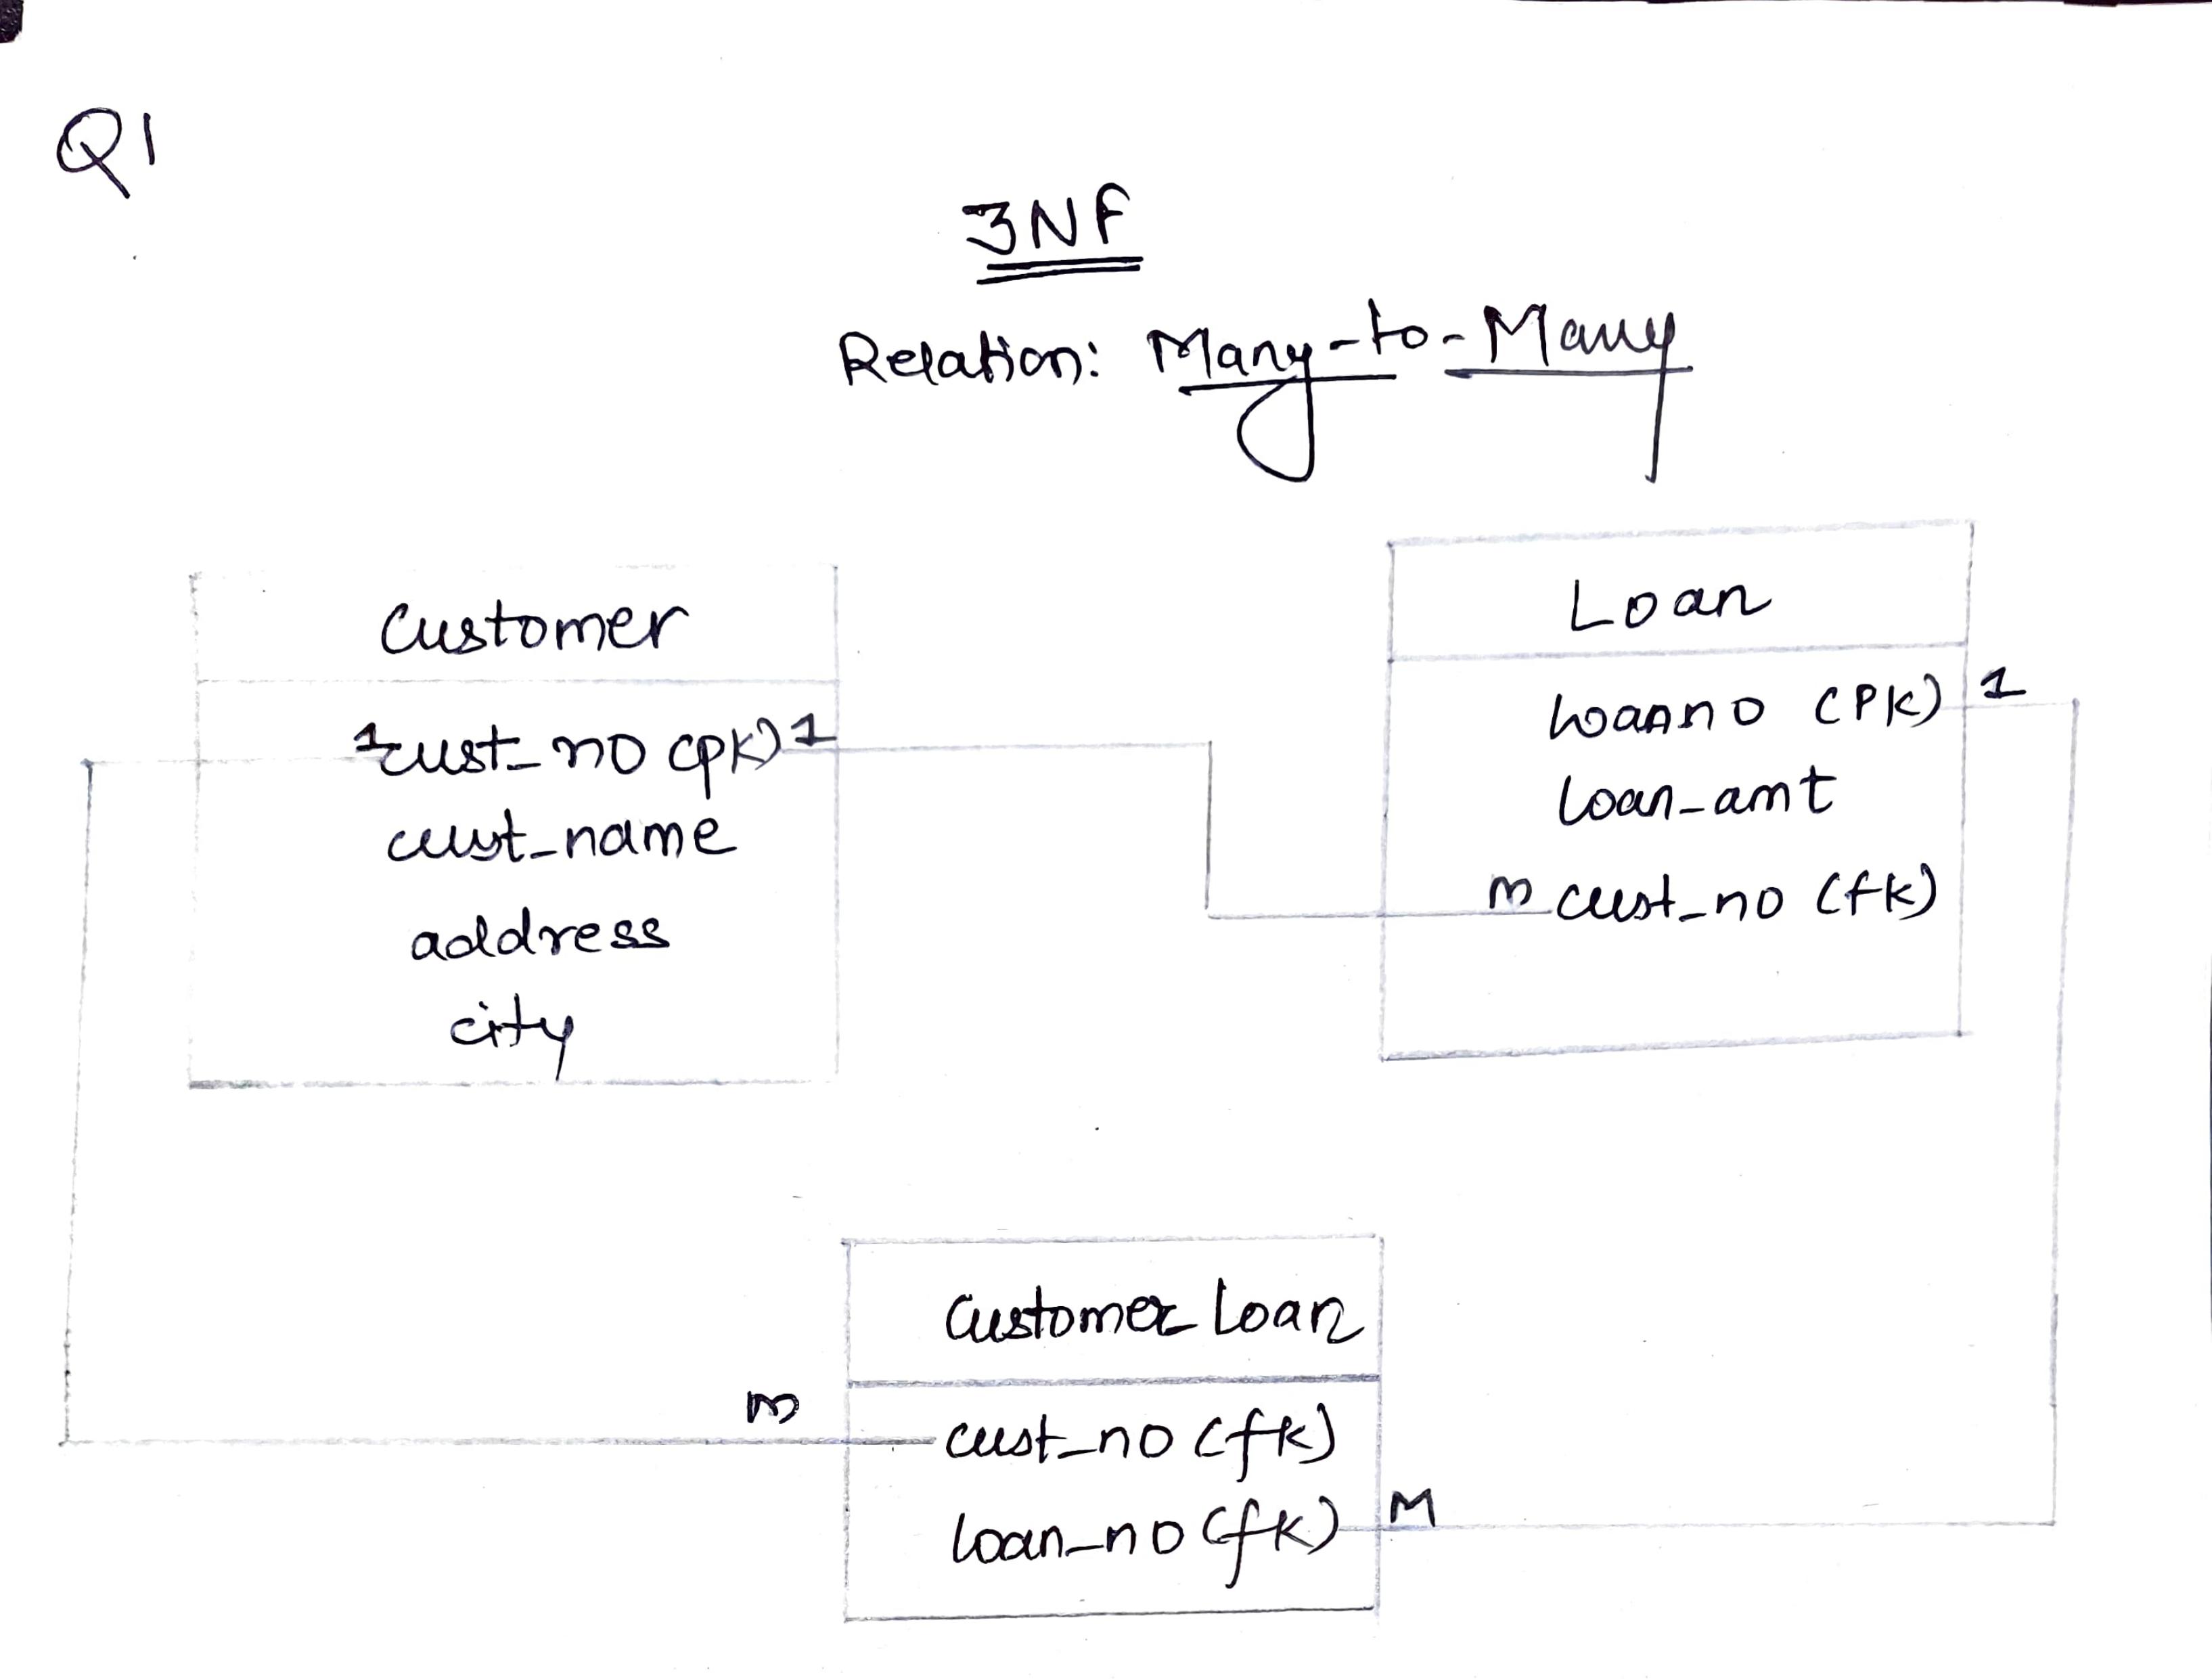 Q1
3NF
Relation: Many-to-Many
Customer
1 cust_no (pk) 1
cust_name
address
city
Loan
loanno (PK) 1
loan_amt
m cust_no (fk)
Customer Loan
m cust_no (fk)
loan_no (fk) M